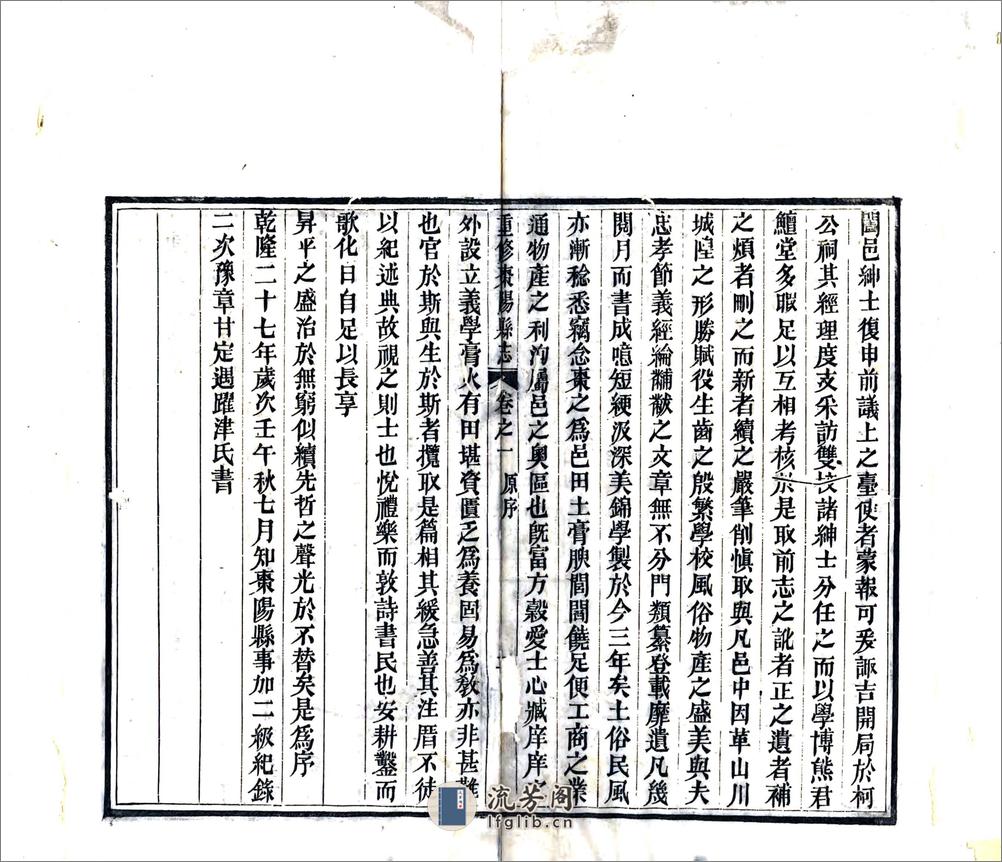 闔邑紳士復申前議上之臺使者蒙報可爰諏吉開局於柯
公祠其經理度支采訪雙挍諸紳士分任之而以學博熊君
鱣堂多暇足以互相考核於是取前志之訛者正之遺者補
之煩者刪之而新者續之嚴筆削慎取與凡邑中因革山川
城隍之形勝賦役生齒之殷繁學校風俗物產之盛美與夫
忠孝節義經綸黼黻之文章無不分門類纂登載靡遺凡幾
閱月而書成噫短綆汲深美錦學製於今三年矣土俗民風
亦漸稔悉竊念棗之為邑田土膏腴閭閻饒足便工商之業
通物產之利洵屬邑之奧區也旣富方穀愛士心誠庠序
重修棗陽縣志 卷之一 原序
外設立義學膏火有田堪資匱乏為養固易為教亦非甚難
也官於斯與生於斯者攬取是篇相其緩急善其注厝不徒
以紀述典故視之則士也悅禮樂而敦詩書民也安耕鑿而
歌化日自足以長享
昇平之盛治於無窮似續先哲之聲光於不替矣是為序
乾隆二十七年歲次壬午秋七月知棗陽縣事加二級紀錄
二次豫章甘定遇躍津氏書
流芳阁
lfglib.cn